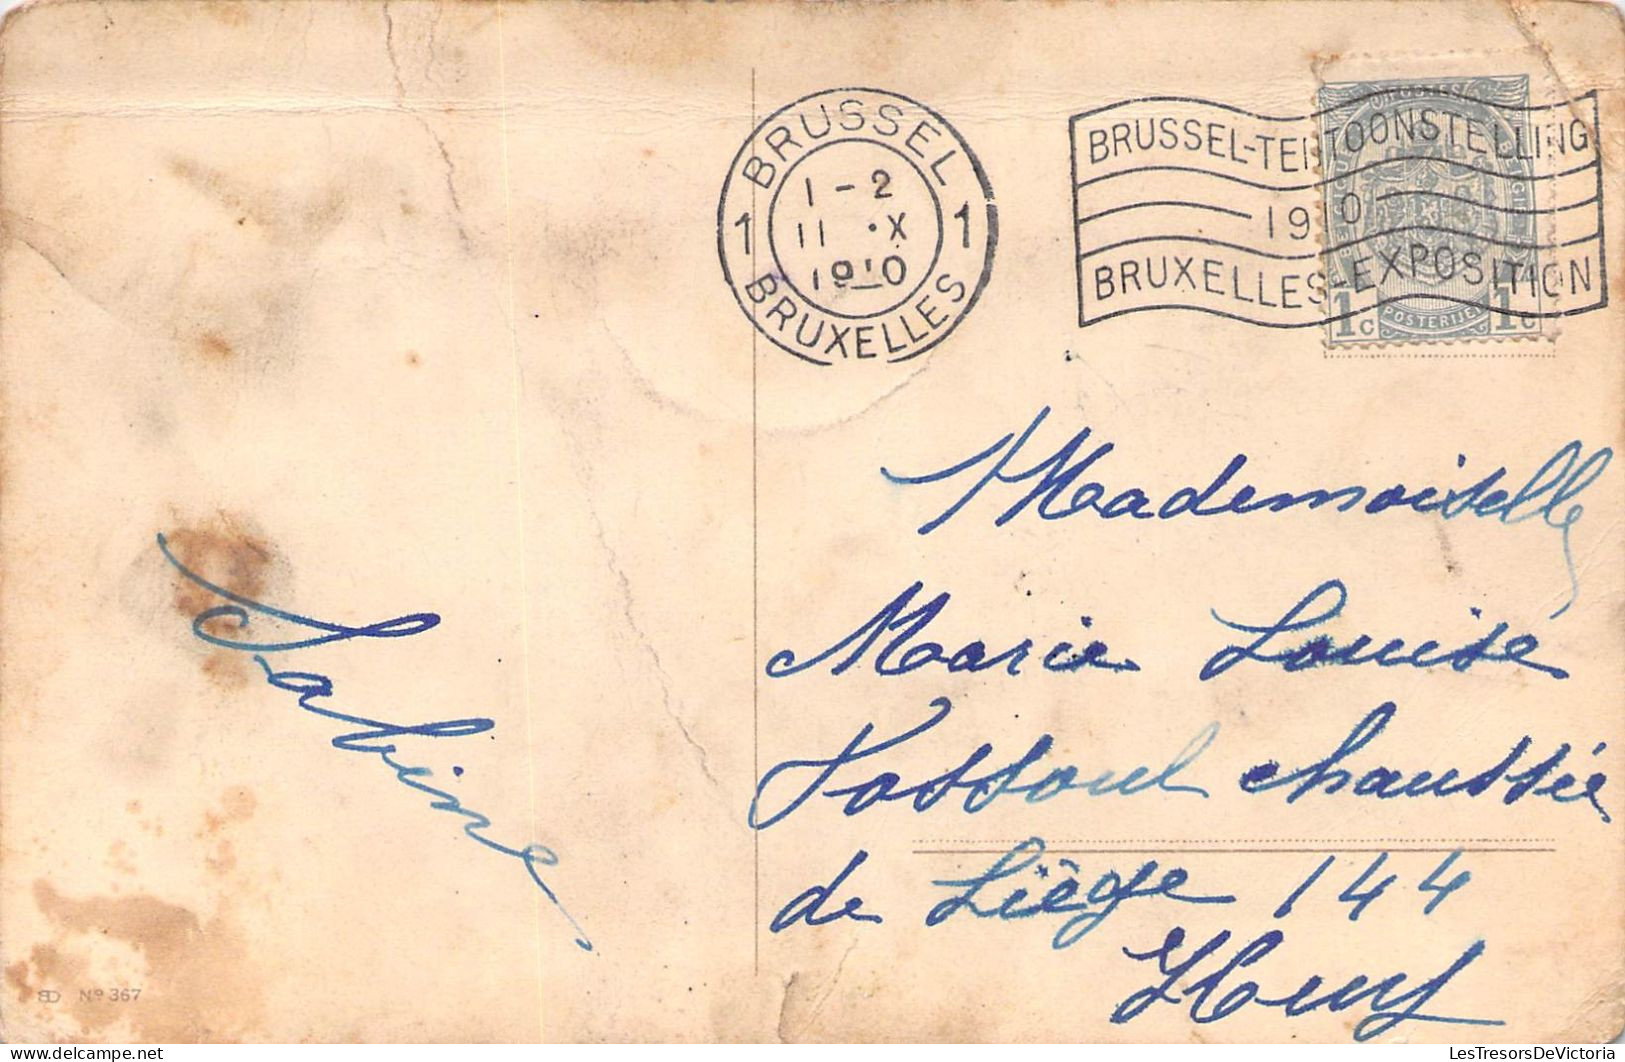 BRUSSEL
1 1-2 1
11 •X
1910
BRUXELLES
BRUSSEL-TENTOONSTELLING
1910
BRUXELLES-EXPOSITION
1c POSTERIJEN 1c
Mademoiselle
Marie Louise
Fossoul chaussée
de Liège 144
Huy
Sabine
Nº 367
LesTresorsDeVictoria